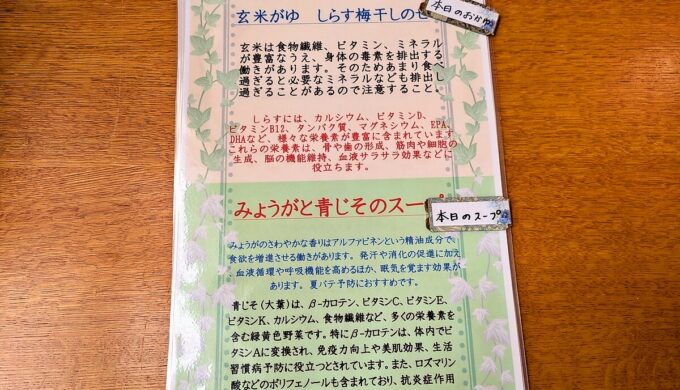 本日のおかゆ
玄米がゆ しらす梅干しのせ
玄米は食物繊維、ビタミン、ミネラル
が豊富なうえ、身体の毒素を排出する
働きがあります。そのためあまり食べ
過ぎると必要なミネラルなども排出し
過ぎることがあるので注意すること。
しらすには、カルシウム、ビタミンD、
ビタミンB12、タンパク質、マグネシウム、EPA、
DHAなど、様々な栄養素が豊富に含まれています
これらの栄養素は、骨や歯の形成、筋肉や細胞の
生成、脳の機能維持、血液サラサラ効果などに
役立ちます。
みょうがと青じそのスープ
本日のスープ
みょうがのさわやかな香りはアルファピネンという精油成分で、
食欲を増進させる働きがあります。発汗や消化の促進に加え
、血液循環や呼吸機能を高めるほか、眠気を覚ます効果が
あります。夏バテ予防におすすめです。
青じそ(大葉)は、β-カロテン、ビタミンC、ビタミンE、
ビタミンK、カルシウム、食物繊維など、多くの栄養素を
含む緑黄色野菜です。特にβ-カロテンは、体内でビ
タミンAに変換され、免疫力向上や美肌効果、生活
習慣病予防に役立つとされています。また、ロズマリン
酸などのポリフェノールも含まれており、抗炎症作用